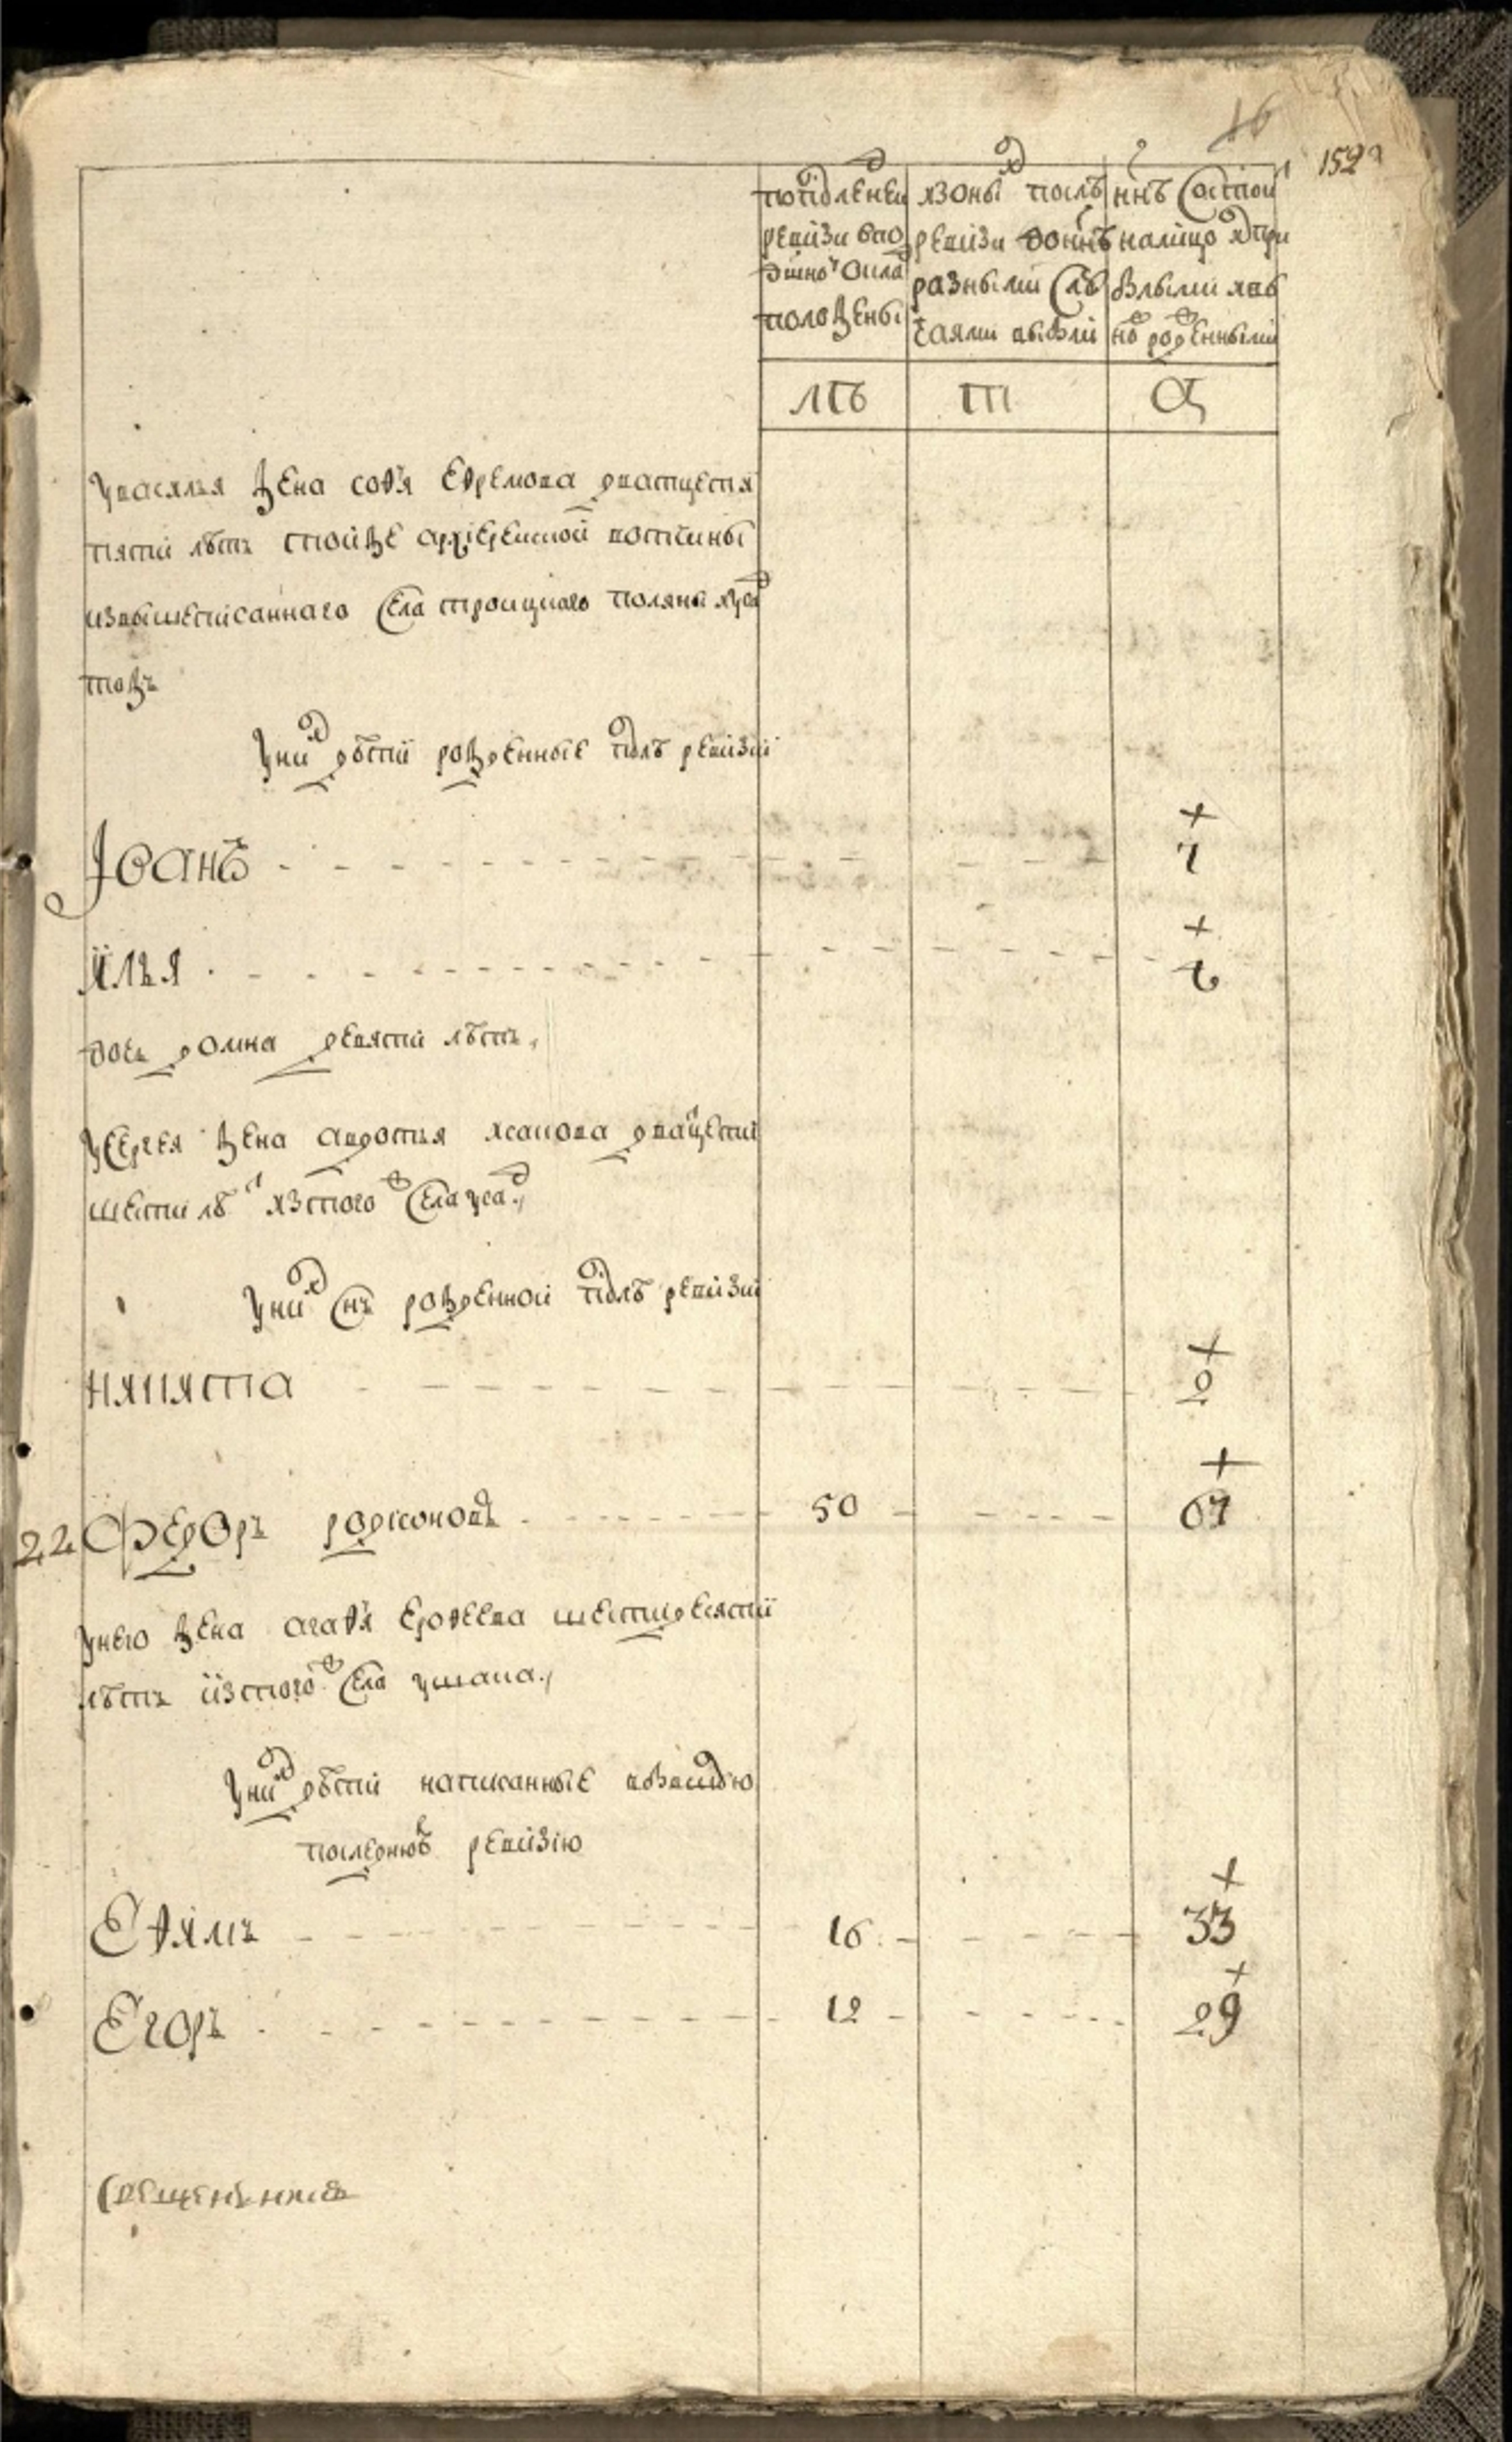 16
152
попослѣдней ревизи въ подушной окладъ положены
изоных послѣ ревизи до нынѣ разными случаями выбыли
нынѣ состоит налицо и с прибылыми и вновь рожденными
лѣ
т
у василья жена софья ефремова дватцети
пяти лѣтъ стойже архиерейской вотчины
извышеписанного села троицкаго поляны усад
тожъ
у них дѣти рожденные послѣ ревизии
Иоанъ 7
илья 2
дочь домна девяти лѣтъ
у сергея жена авдотья исакова дватцети
шести лѣт из того ж села усад
у них снъ рожденной послѣ ревизии
никита 2
22 Федоръ родионовъ 50 67
у него жена агафья ерофеева шестидесяти
лѣтъ из того ж села ушака
у них дѣти написанные въ бывшую
последнюю ревизию
Ефимъ 16 33
Егоръ 12 29
священникъ